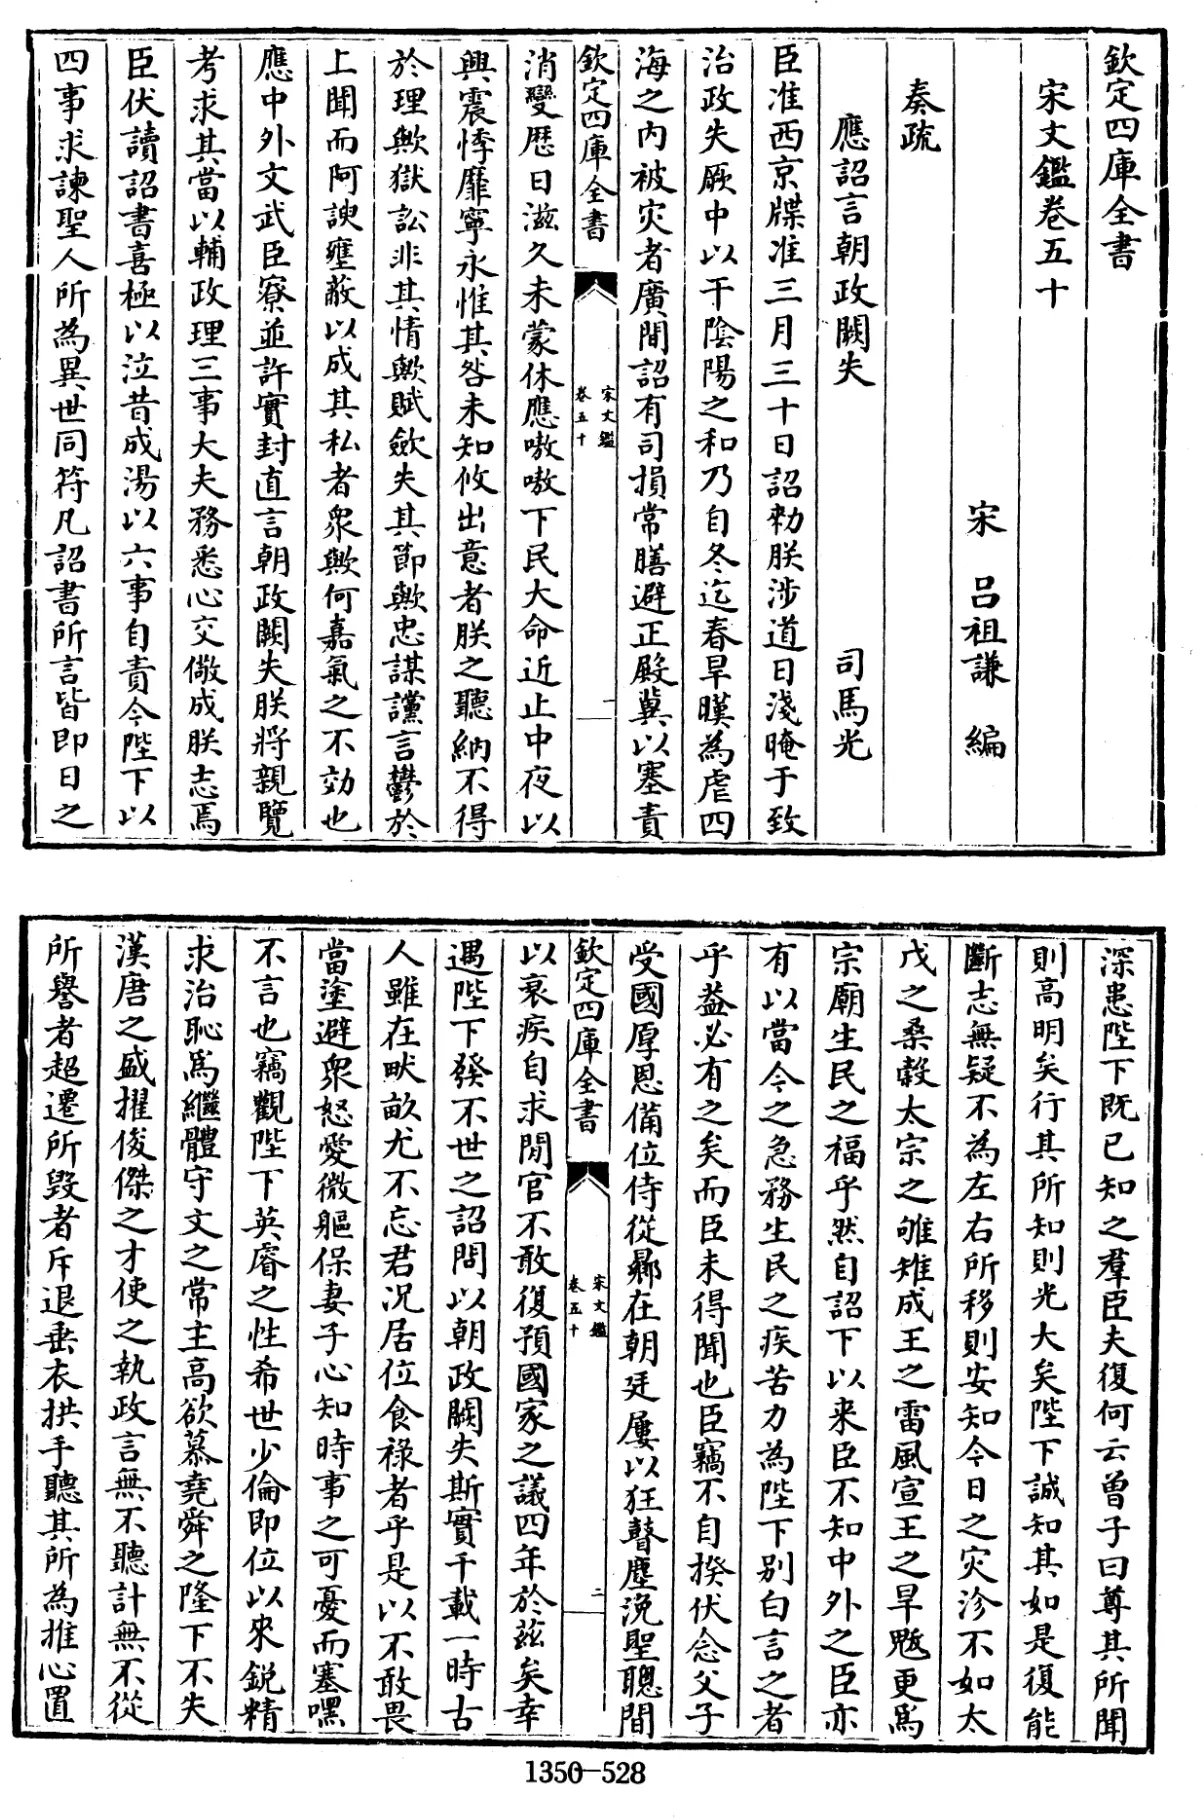 欽定四庫全書
宋文鑑卷五十
宋 呂祖謙 編
奏疏
應詔言朝政闕失 司馬光
臣准西京牒准三月三十日詔勑朕涉道日淺晻于致
治政失厥中以干陰陽之和乃自冬迄春旱暵為虐四
海之内被灾者廣間詔有司損常膳避正殿冀以塞責
欽定四庫全書 宋文鑑 卷五十 一
消變歷日滋久未蒙休應嗷嗷下民大命近止中夜以
興震悸靡寧永惟其咎未知攸出意者朕之聽納不得
於理歟獄訟非其情歟賦斂失其節歟忠謀讜言鬱於
上聞而阿諛壅蔽以成其私者衆歟何嘉氣之不効也
應中外文武臣寮並許實封直言朝政闕失朕將親覽
考求其當以輔政理三事大夫務悉心交儆成朕志焉
臣伏讀詔書喜極以泣昔成湯以六事自責今陛下以
四事求諫聖人所為異世同符凡詔書所言皆即日之
深患陛下既已知之羣臣夫復何云曾子曰尊其所聞
則高明矣行其所知則光大矣陛下誠知其如是復能
斷志無疑不為左右所移則安知今日之灾沴不如太
戊之桑榖太宗之雊雉成王之雷風宣王之旱魃更爲
宗廟生民之福乎然自詔下以来臣不知中外之臣亦
有以當今之急務生民之疾苦力為陛下别白言之者
乎葢必有之矣而臣未得聞也臣竊不自揆伏念父子
受國厚恩備位侍從曏在朝廷屢以狂瞽塵浼聖聰間
欽定四庫全書 宋文鑑 卷五十 二
以衰疾自求閒官不敢復預國家之議四年於兹矣幸
遇陛下發不世之詔問以朝政闕失斯實千載一時古
人雖在畎畝尤不忘君况居位食祿者乎是以不敢畏
當塗避衆怒愛微軀保妻子心知時事之可憂而塞嘿
不言也竊觀陛下英睿之性希世少倫即位以來鋭精
求治恥爲繼體守文之常主高欲慕堯舜之隆下不失
漢唐之盛擢俊傑之才使之執政言無不聽計無不從
所譽者超遷所毀者斥退垂衣拱手聽其所為推心置
1350-528